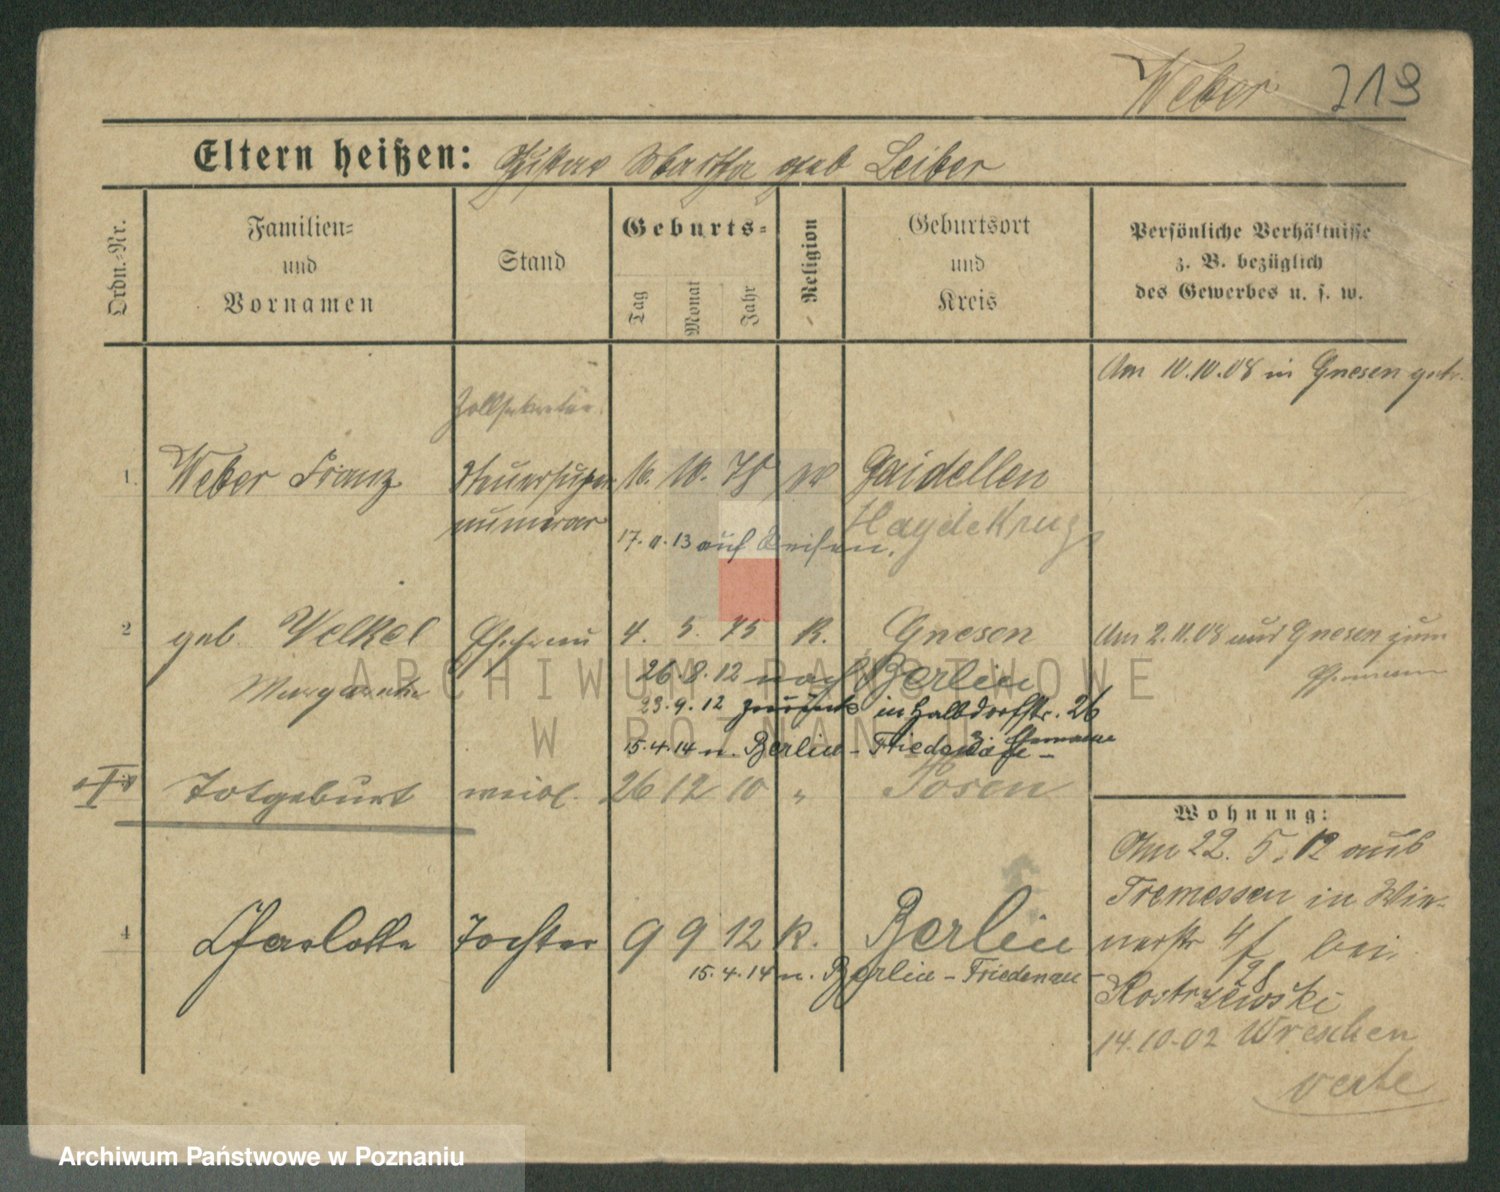 Weber 219
Eltern heißen: Gustav Martha geb Leiber
Ordn.-Nr.
Familien-
und
Vornamen
Stand
Geburts-
Tag
Monat
Jahr
Religion
Geburtsort
und
Kreis
Persönliche Verhältnisse
z. B. bezüglich
des Gewerbes u. s. w.
Am 10.10.08 in Gnesen getr.
Zollsekretär
1. Weber Franz Steuersuper 16. 10. 78 Gaidellen
numerar Haydekrug
17. 11. 13 auf Reisen.
2 geb. Welkel Ehefrau 4. 5. 75 K. Gnesen
Am 2.11.08 aus Gnesen zum
Ehemann
Margarethe 26.8.12 nach Berlin
23.9.12 zurück in Halbdorfstr. 26
z. Ehemann
15.4.14 n. Berlin-
Totgeburt weibl. 26 12 10 " Posen
Wohnung:
Am 22. 5. 12 aus
Tremessen in
4 Charlotte Tochter 9 9 12 K. Berlin
15.4.14 n. Berlin-Friedenau
bei
Kostrzewski
14.10.02 Wreschen
verte
ARCHIWUM PAŃSTWOWE
W POZNANIU
Archiwum Państwowe w Poznaniu